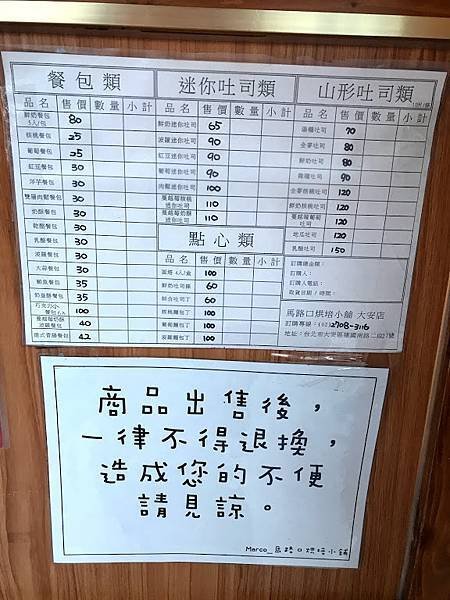 餐包類
品名 售價 數量 小計
鮮奶餐包 5入/包 80
核桃餐包 25
葡萄餐包 25
紅豆餐包 30
洋芋餐包 30
雙層肉鬆餐包 30
奶酥餐包 30
乾酪餐包 30
乳酪餐包 30
菠蘿餐包 30
大蒜餐包 30
鮪魚餐包 35
奶皇酥餐包 35
100
蔓越莓奶酥 波蘿餐包 40
德式香腸餐包 42
迷你吐司類
品名 售價 數量 小計
鮮奶迷你吐司 65
菠蘿迷你吐司 90
紅豆迷你吐司 90
葡萄迷你吐司 90
肉鬆迷你吐司 100
蔓越莓核桃 迷你吐司 110
蔓越莓奶酥 迷你吐司 110
點心類
品名 售價 數量 小計
蛋塔 4入/盒 100
鮮奶吐司條 60
綜合吐司丁 60
核桃麵包丁 100
葡萄麵包丁 100
菠蘿麵包丁 100
山形吐司類
品名 售價 數量 小計
湯種吐司 70
全麥吐司 80
鮮奶吐司 80
雜糧吐司 90
全麥核桃吐司 120
鮮奶核桃吐司 120
蔓越莓葡萄 吐司 120
地瓜吐司 120
乳酪吐司 150
訂購總金額：
訂購人：
訂購人電話：
取貨日期/時間：
馬路口烘培小舖 大安店
訂購專線：(02)2708-3116
地址：台北市大安區建國南路二段27號
商品出售後，
一律不得退換，
造成您的不便
請見諒。
Marco_馬路口烘培小舖